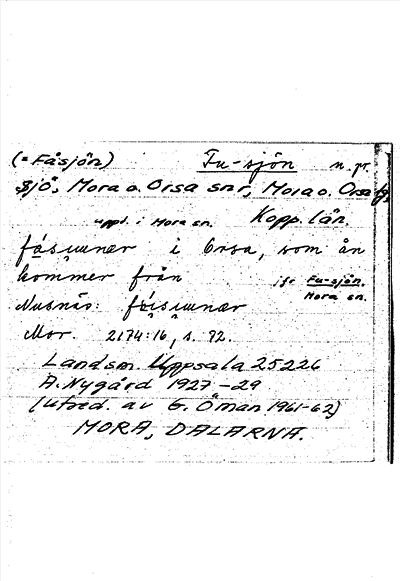 (= Fåsjön) Fu-sjön n.pr.
sjö, Mora o. Orsa snr, Mora o. Orsa tg,
uppt. i Mora sn. Kopp. län.
i Orsa, som ån
kommer från jfr Fu-sjön.
Mora sn.
Nusnäs:
Mor. 2174:16, s. 92.
Landsm. Uppsala 25226
A. Nygård 1927-29
(utred. av G. Öman 1961-62)
MORA, DALARNA.